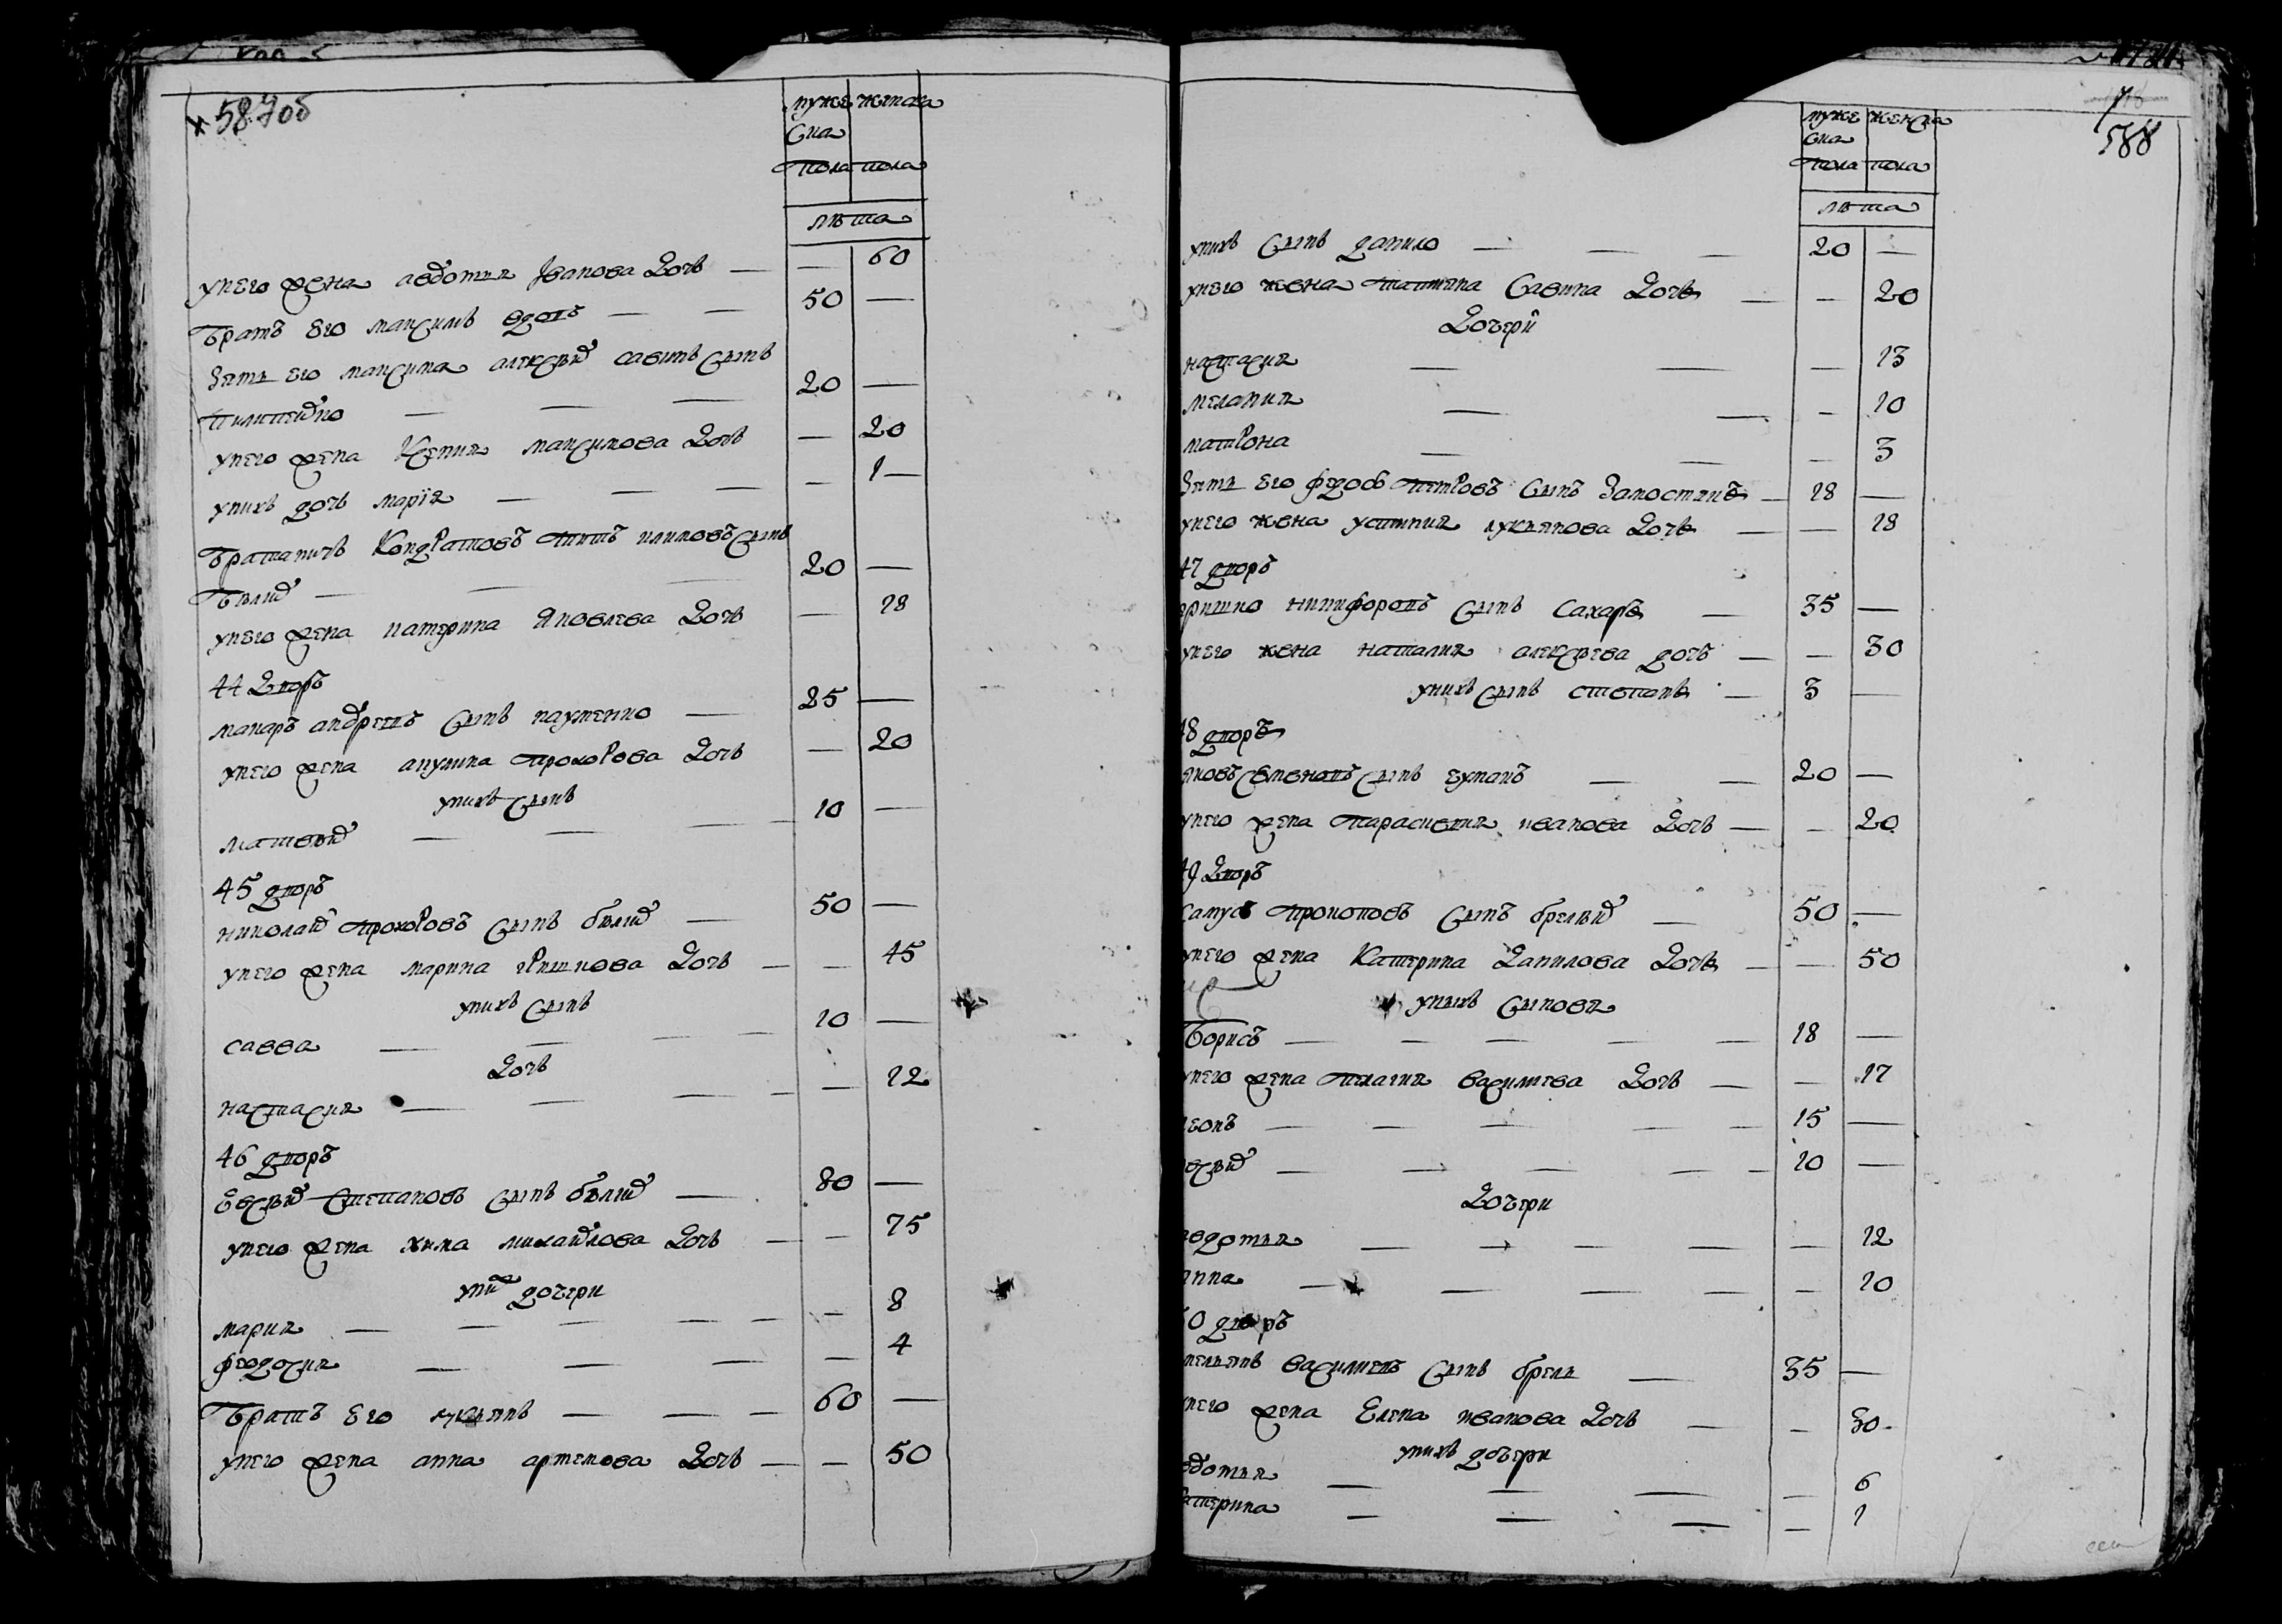 587об
муже женска
ска
пола пола
лѣта
унего жена авдотия Іванова дочъ — — 60
братъ его максимъ вдовъ — — 50 —
зять его максима алексѣй савинъ сынъ
пилипейко — — — 20 —
унего жена Ксения максимова дочъ — 20
унихъ дочъ марія — — — — 1
братаничъ Кондратовъ титъ климовъ сынъ
бѣлий — — — 20 —
унего жена катерина Яковлева дочъ — 18
44 дворъ
макаръ андреевъ сынъ науменко — 25 —
унего жена акулина прохорова дочъ — 20
унихъ сынъ
матвѣй — — — 10 —
45 дворъ
николай прохоровъ сынъ бѣлий — 50 —
унего жена марина гришкова дочъ — — 45
унихъ сынъ
савва — — — 10 —
дочъ
настасия — — — — 12
46 дворъ
Евсѣй степановъ сынъ бѣлий — 80 —
унего жена хима михайлова дочъ — — 75
уних дочери
мария — — — — — — 8
феодосия — — — — 4
братъ Его лукьянъ — — — 60 —
унего жена анна артемова дочъ — — 50
588
муже женска
ска
пола пола
лѣта
унихъ сынъ данило — — — 20 —
унего жена татияна Савина дочъ — — 20
дочери
настасия — — — 13
мелания — — — 10
матрона — — — 3
зять его федоръ петровъ сынъ Запостник — 18 —
унего жена устиния лукьянова дочъ — — 18
47 дворъ
гришко никифоровъ сынъ Сахаръ — 35 —
унего жена наталия алексѣева дочъ — — 30
унихъ сынъ степанъ — 3 —
48 дворъ
яковъ семеновъ сынъ ехманъ — — 20 —
унего жена парасковия иванова дочъ — — 20
49 дворъ
самусъ прокоповъ сынъ брелий — 50 —
унего жена Катерина данилова дочъ — — 50
унихъ сыновя
борисъ — — — — — 18 —
унего жена пелагия василиева дочъ — — 17
леонъ — — — — — 15 —
евсѣй — — — — — 10 —
дочери
авдотия — — — — — 12
анна — — — — — 10
50 дворъ
емельянъ василиевъ сынъ брели — 35 —
унего жена Елена иванова дочъ — — 30
унихъ дочери
авдотия — — — — 6
катерина — — — — 1